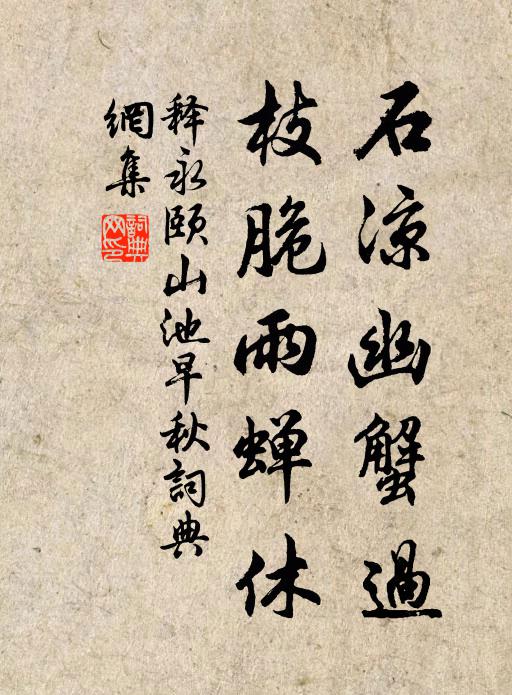 石凉幽蟹過
枝脆雨蝉休
释永頤山池早秋詞典
網集
詞典網印